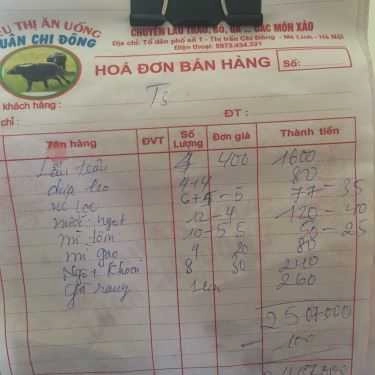 ÊU THỊ ĂN UỐNG
UÂN CHI ĐÔNG
CHUYÊN LẨU TRÂU, BÒ, GÀ ... CÁC MÓN XÀO
Địa chỉ: Tổ dân phố số 1 - Thị trấn Chi Đông - Mê Linh - Hà Nội
Điện thoại: 0973.434.221
HOÁ ĐƠN BÁN HÀNG
Số:
khách hàng :
chỉ :
ĐT :
Tên hàng ĐVT Số Lượng Đơn giá Thành tiền
Lẩu trâu 4 400 1600
dưa leo 4+4 80
6+5 - 5 77 - 35
nước ngọt 12 - 4 120 - 40
mì tôm 10 - 5 5 50 - 25
mì gạo 4 20 80
8 30 240
Gà rang 260
2507000
100